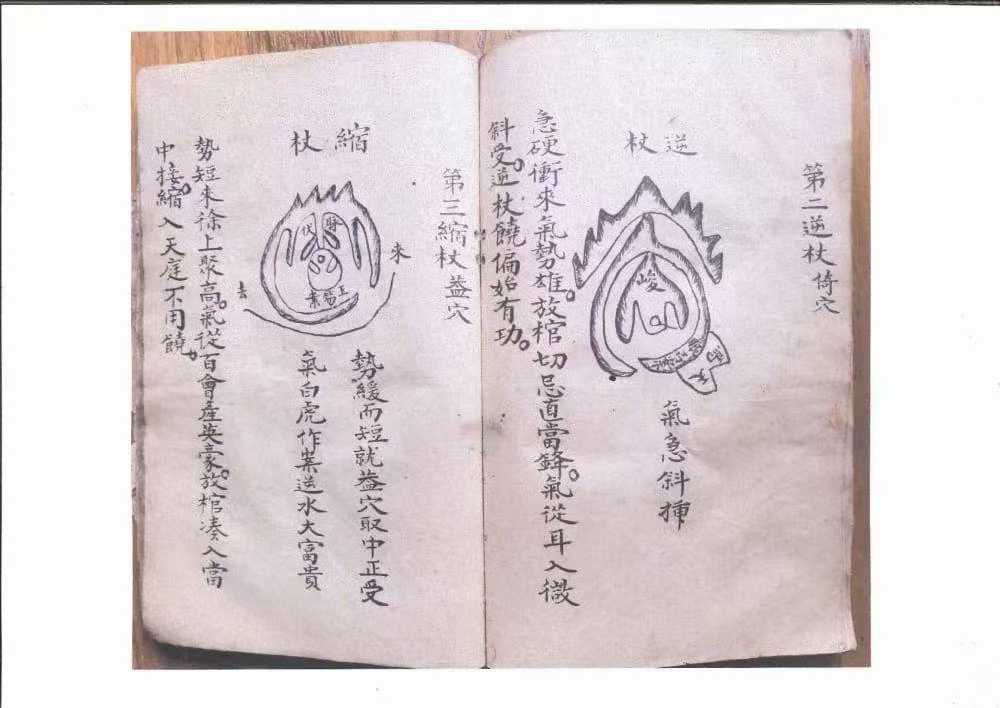 第二逆杖倚穴
逆杖
峻
氣急斜揷
急硬衝來氣勢雄。放棺切忌直當鋒。氣從耳入微
斜受。逆杖饒偏始有功。
第三縮杖盖穴
縮杖
來
去
勢緩而短就盖穴取中正受
氣白虎作案送水大富貴
勢短來徐上聚高。氣從百會產英豪。放棺凑入當
中接。縮入天庭不用饒。